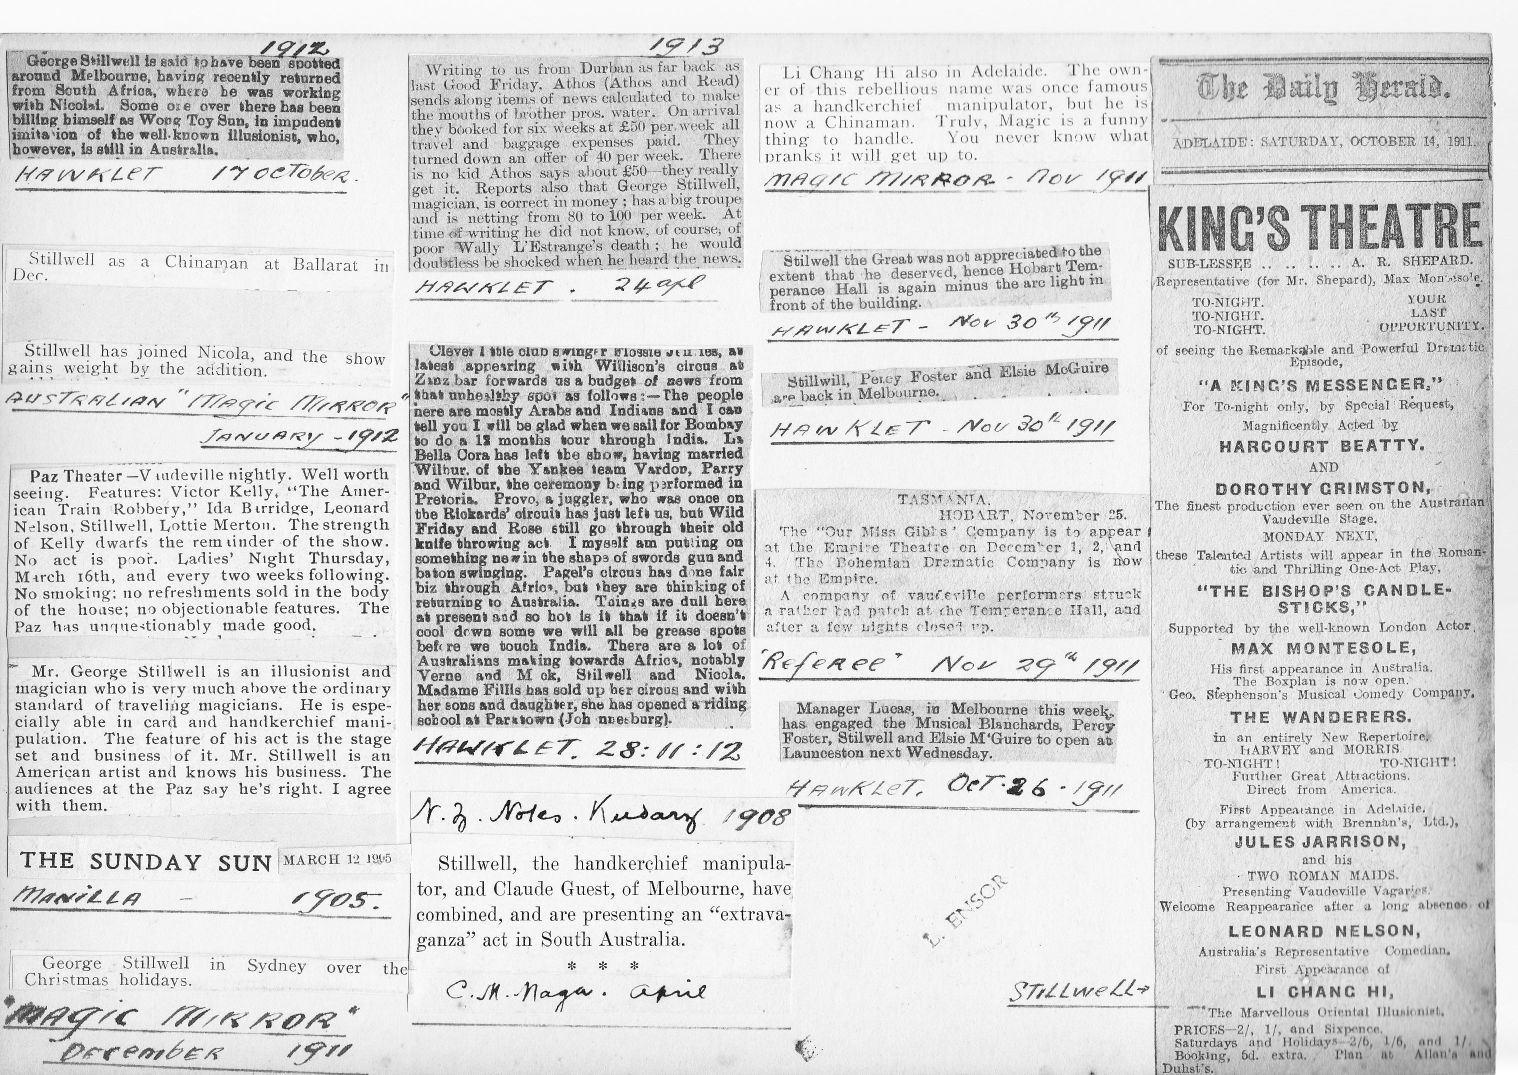 1912
George Stillwell is said to have been spotted
around Melbourne, having recently returned
from South Africa, where he was working
with Nicolai. Some one over there has been
billing himself as Wong Toy Sun, in impudent
imitation of the well-known illusionist, who,
however, is still in Australia.
HAWKLET 17 OCTOBER.
Stillwell as a Chinaman at Ballarat in
Dec.
Stillwell has joined Nicola, and the show
gains weight by the addition.
AUSTRALIAN "MAGIC MIRROR"
JANUARY - 1912
Paz Theater—Vaudeville nightly. Well worth
seeing. Features: Victor Kelly, "The Amer-
ican Train Robbery," Ida Berridge, Leonard
Nelson, Stillwell, Lottie Merton. The strength
of Kelly dwarfs the remainder of the show.
No act is poor. Ladies' Night Thursday,
March 16th, and every two weeks following.
No smoking; no refreshments sold in the body
of the house; no objectionable features. The
Paz has unquestionably made good.
Mr. George Stillwell is an illusionist and
magician who is very much above the ordinary
standard of traveling magicians. He is espe-
cially able in card and handkerchief mani-
pulation. The feature of his act is the stage
set and business of it. Mr. Stillwell is an
American artist and knows his business. The
audiences at the Paz say he's right. I agree
with them.
THE SUNDAY SUN MARCH 12 1905
MANILLA - 1905.
George Stillwell in Sydney over the
Christmas holidays.
"MAGIC MIRROR"
DECEMBER 1911
1913
Writing to us from Durban as far back as
last Good Friday, Athos (Athos and Read)
sends along items of news calculated to make
the mouths of brother pros. water. On arrival
they booked for six weeks at £50 per week all
travel and baggage expenses paid. They
turned down an offer of 40 per week. There
is no kid Athos says about £50—they really
get it. Reports also that George Stillwell,
magician, is correct in money; has a big troupe
and is netting from 80 to 100 per week. At
time of writing he did not know, of course, of
poor Wally L'Estrange's death; he would
doubtless be shocked when he heard the news.
HAWKLET. 24 apl
Clever little club swinger Flossie, as
latest appearing with Willison's circus at
Zanzbar forwards us a budget of news from
that unhealthy spot as follows:—The people
here are mostly Arabs and Indians and I can
tell you I will be glad when we sail for Bombay
to do a 12 months tour through India. La
Bella Cora has left the show, having married
Wilbur, of the Yankee team Vardon, Perry
and Wilbur, the ceremony being performed in
Pretoria. Provo, a juggler, who was once on
the Rickards' circuit has just left us, but Wild
Friday and Rose still go through their old
knife throwing act. I myself am putting on
something new in the shape of swords gun and
baton swinging. Pagel's circus has done fair
biz through Africa, but they are thinking of
returning to Australia. Things are dull here
at present and so hot is it that if it doesn't
cool down some we will all be grease spots
before we touch India. There are a lot of
Australians making towards Africa, notably
Verne and Mock, Stilwell and Nicola.
Madame Fillis has sold up her circus and with
her sons and daughter, she has opened a riding
school at Parktown (Johannesburg).
HAWKLET. 28:11:12
N.Z. Notes. 1908
Stillwell, the handkerchief manipula-
tor, and Claude Guest, of Melbourne, have
combined, and are presenting an "extrava-
ganza" act in South Australia.
* * *
C.M. Naga. April
Li Chang Hi also in Adelaide. The own-
er of this rebellious name was once famous
as a handkerchief manipulator, but he is
now a Chinaman. Truly, Magic is a funny
thing to handle. You never know what
pranks it will get up to.
MAGIC MIRROR - Nov 1911
Stilwell the Great was not appreciated to the
extent that he deserved, hence Hobart Tem-
perance Hall is again minus the arc light in
front of the building.
HAWKLET - Nov 30th 1911
Stillwill, Percy Foster and Elsie McGuire
are back in Melbourne.
HAWKLET - Nov 30th 1911
TASMANIA.
HOBART, November 25.
The "Our Miss Gibbs" Company is to appear
at the Empire Theatre on December 1, 2, and
4. The Bohemian Dramatic Company is now
at the Empire.
A company of vaudeville performers struck
a rather bad patch at the Temperance Hall, and
after a few nights closed up.
"Referee" Nov 29th 1911
Manager Lucas, in Melbourne this week,
has engaged the Musical Blanchards, Percy
Foster, Stilwell and Elsie M'Guire to open at
Launceston next Wednesday.
HAWKLET. OCT. 26 - 1911
L. ENSOR
STILLWELL→
The Daily Herald.
ADELAIDE: SATURDAY, OCTOBER 14, 1911.
KING'S THEATRE
SUB-LESSEE .. .. .. .. A. R. SHEPARD.
Representative (for Mr. Shepard), Max Montesole.
TO-NIGHT. YOUR
TO-NIGHT. LAST
TO-NIGHT. OPPORTUNITY.
of seeing the Remarkable and Powerful Dramatic
Episode,
"A KING'S MESSENGER,"
For To-night only, by Special Request,
Magnificently Acted by
HARCOURT BEATTY.
AND
DOROTHY GRIMSTON,
The finest production ever seen on the Australian
Vaudeville Stage.
MONDAY NEXT,
these Talented Artists will appear in the Roman-
tic and Thrilling One-Act Play,
"THE BISHOP'S CANDLE-
STICKS,"
Supported by the well-known London Actor,
MAX MONTESOLE,
His first appearance in Australia.
The Boxplan is now open.
Geo. Stephenson's Musical Comedy Company,
THE WANDERERS.
in an entirely New Repertoire.
HARVEY and MORRIS
TO-NIGHT! TO-NIGHT!
Further Great Attractions.
Direct from America.
First Appearance in Adelaide,
(by arrangement with Brennan's, Ltd.),
JULES JARRISON,
and his
TWO ROMAN MAIDS.
Presenting Vaudeville Vagaries.
Welcome Reappearance after a long absence of
LEONARD NELSON,
Australia's Representative Comedian.
First Appearance of
LI CHANG HI,
"The Marvellous Oriental Illusionist.
PRICES—2/, 1/, and Sixpence.
Saturdays and Holidays—2/6, 1/6, and 1/.
Booking, 6d. extra. Plan at Allan's and
Duhst's.